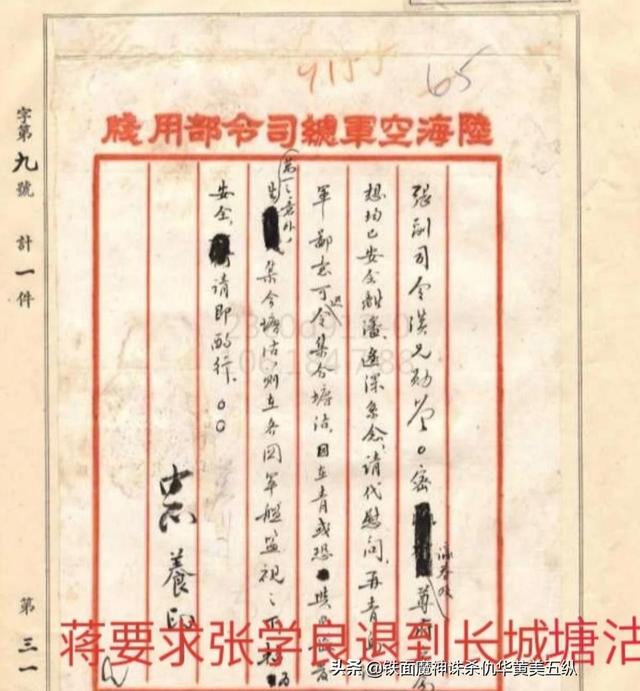 65
陸海空軍總司令部用牋
字第九號 計一件
張副司令漢兄勛鑒。密 尊府
想均已安全離瀋,遙深系念,請代慰問。再青島
軍鄙意可迅令集合塘沽,因在青或恐
萬一之意外,
集合塘沽,則在各國軍艦監視之下較為
安全。請即酌行。○○
中正 養印
第三一
蒋要求张学良退到长城塘沽
头条 @铁面魔神诛杀仇华黄美五纵